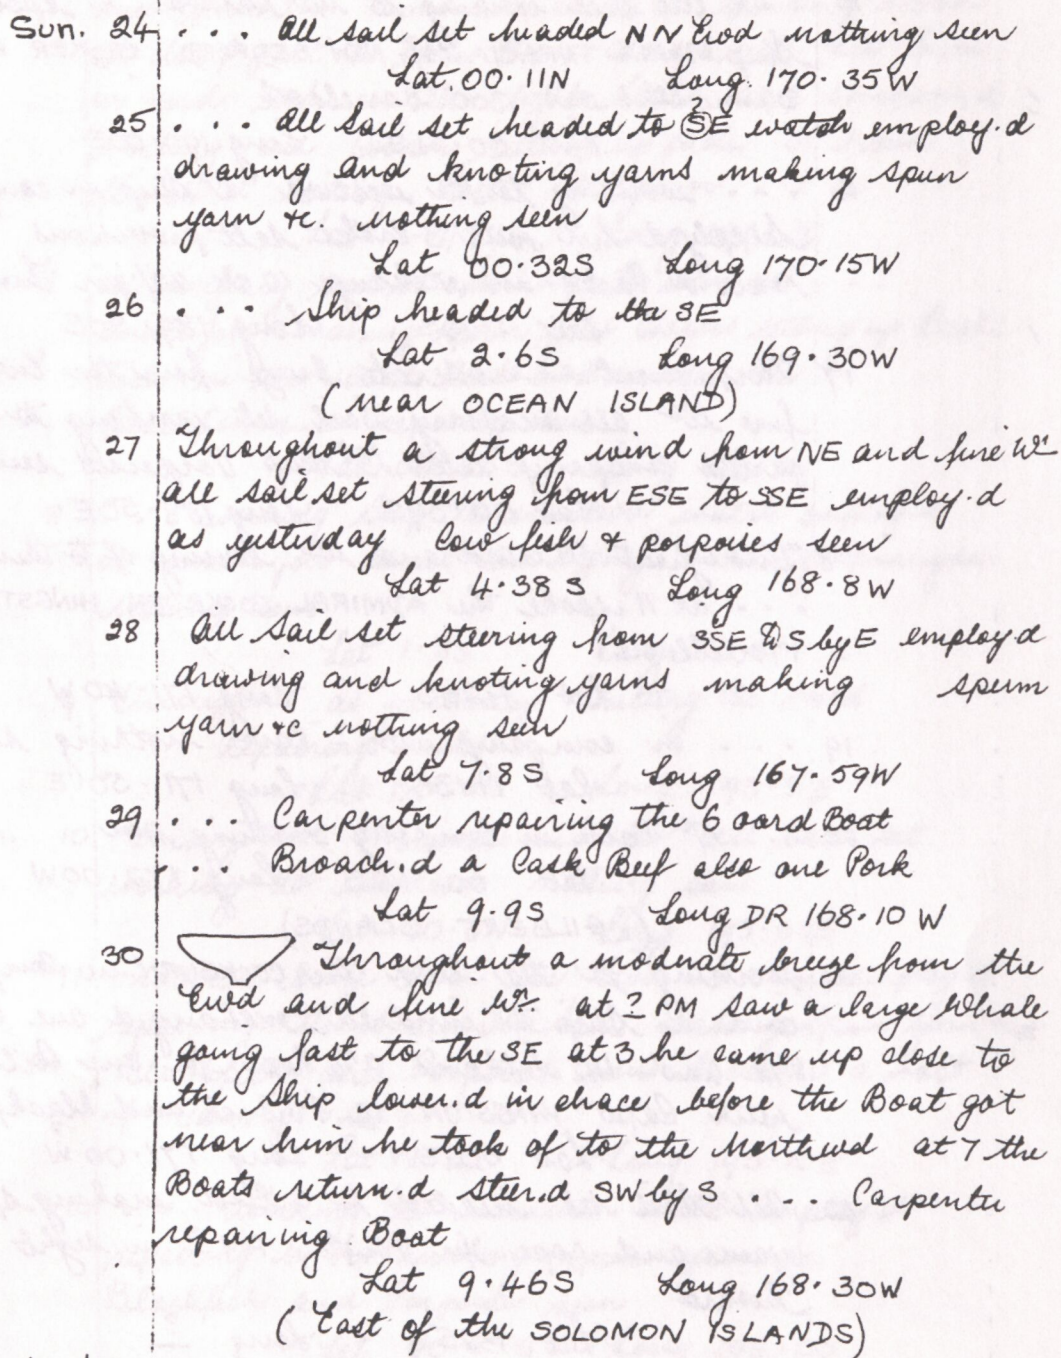 Sun. 24 . . . All sail set headed NN Ewd nothing seen
Lat. 00.11N Long. 170.35W
25 . . . All sail set headed to SE? watch employ.d
drawing and knoting yarns making spun
yarn &c. nothing seen
Lat 00.32S Long 170.15W
26 . . . Ship headed to the SE
Lat 2.6S Long 169.30W
(near OCEAN ISLAND)
27 Throughout a strong wind from NE and fine Wr
all sail set steering from ESE to SSE employ.d
as yesterday Cow fish & porpoises seen
Lat 4.38S Long 168.8W
28 All sail set steering from SSE to S by E employ.d
drawing and knoting yarns making spum
yarn &c nothing seen
Lat 7.8S Long 167.59W
29 . . . Carpenter repairing the 6 oard Boat
. . . Broach.d a Cask Beef also one Pork
Lat 9.9S Long DR 168.10W
30 Throughout a moderate breeze from the
Ewd and fine Wr. at ? PM saw a large Whale
going fast to the SE at 3 he came up close to
the Ship lower.d in chace before the Boat got
near him he took of to the Northwd at 7 the
Boats return.d steer.d SW by S . . . Carpenter
repairing Boat
Lat 9.46S Long 168.30W
(East of the SOLOMON ISLANDS)